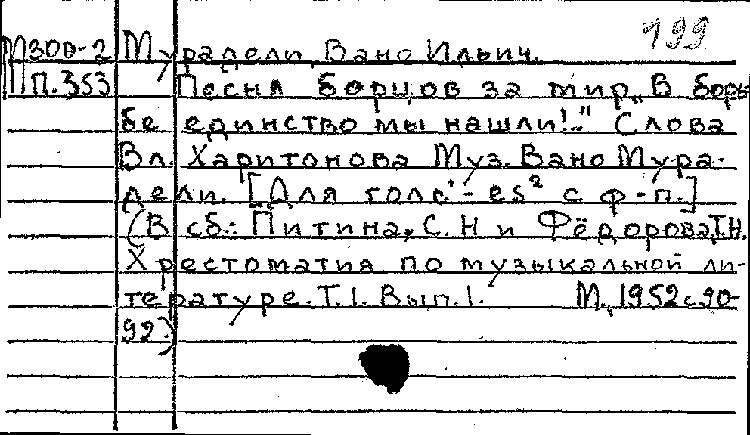 199
М300-2 Мурадели, Вано Ильич.
П.353 Песня борцов за мир „В борь-
бе единство мы нашли!.." Слова
Вл. Харитонова Муз. Вано Мура-
дели. [Для голс'-es² с ф-п.]
(В сб.: Питина, С.Н и Фёдорова, Т.Н.
Хрестоматия по музыкальной ли-
тературе. Т.1. Вып.1. М., 1952 с.90-
92)